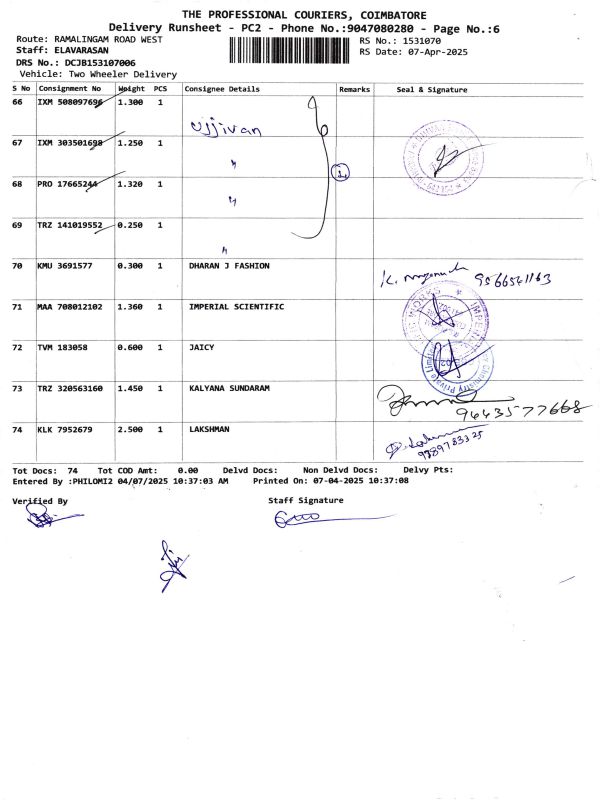 THE PROFESSIONAL COURIERS, COIMBATORE
Delivery Runsheet - PC2 - Phone No.:9047080280 - Page No.:6
Route: RAMALINGAM ROAD WEST RS No.: 1531070
Staff: ELAVARASAN RS Date: 07-Apr-2025
DRS No.: DCJB153107006
Vehicle: Two Wheeler Delivery
S No Consignment No Weight PCS Consignee Details Remarks Seal & Signature
66 IXM 508097696 1.300 1 Ujjivan
67 IXM 303501698 1.250 1 〃
68 PRO 17665244 1.320 1 〃
69 TRZ 141019552 0.250 1 〃
70 KMU 3691577 0.300 1 DHARAN J FASHION 9566541163
71 MAA 708012102 1.360 1 IMPERIAL SCIENTIFIC
72 TVM 183058 0.600 1 JAICY
73 TRZ 320563160 1.450 1 KALYANA SUNDARAM 9443577668
74 KLK 7952679 2.500 1 LAKSHMAN
Tot Docs: 74 Tot COD Amt: 0.00 Delvd Docs: Non Delvd Docs: Delvy Pts:
Entered By :PHILOMI2 04/07/2025 10:37:03 AM Printed On: 07-04-2025 10:37:08
Verified By Staff Signature